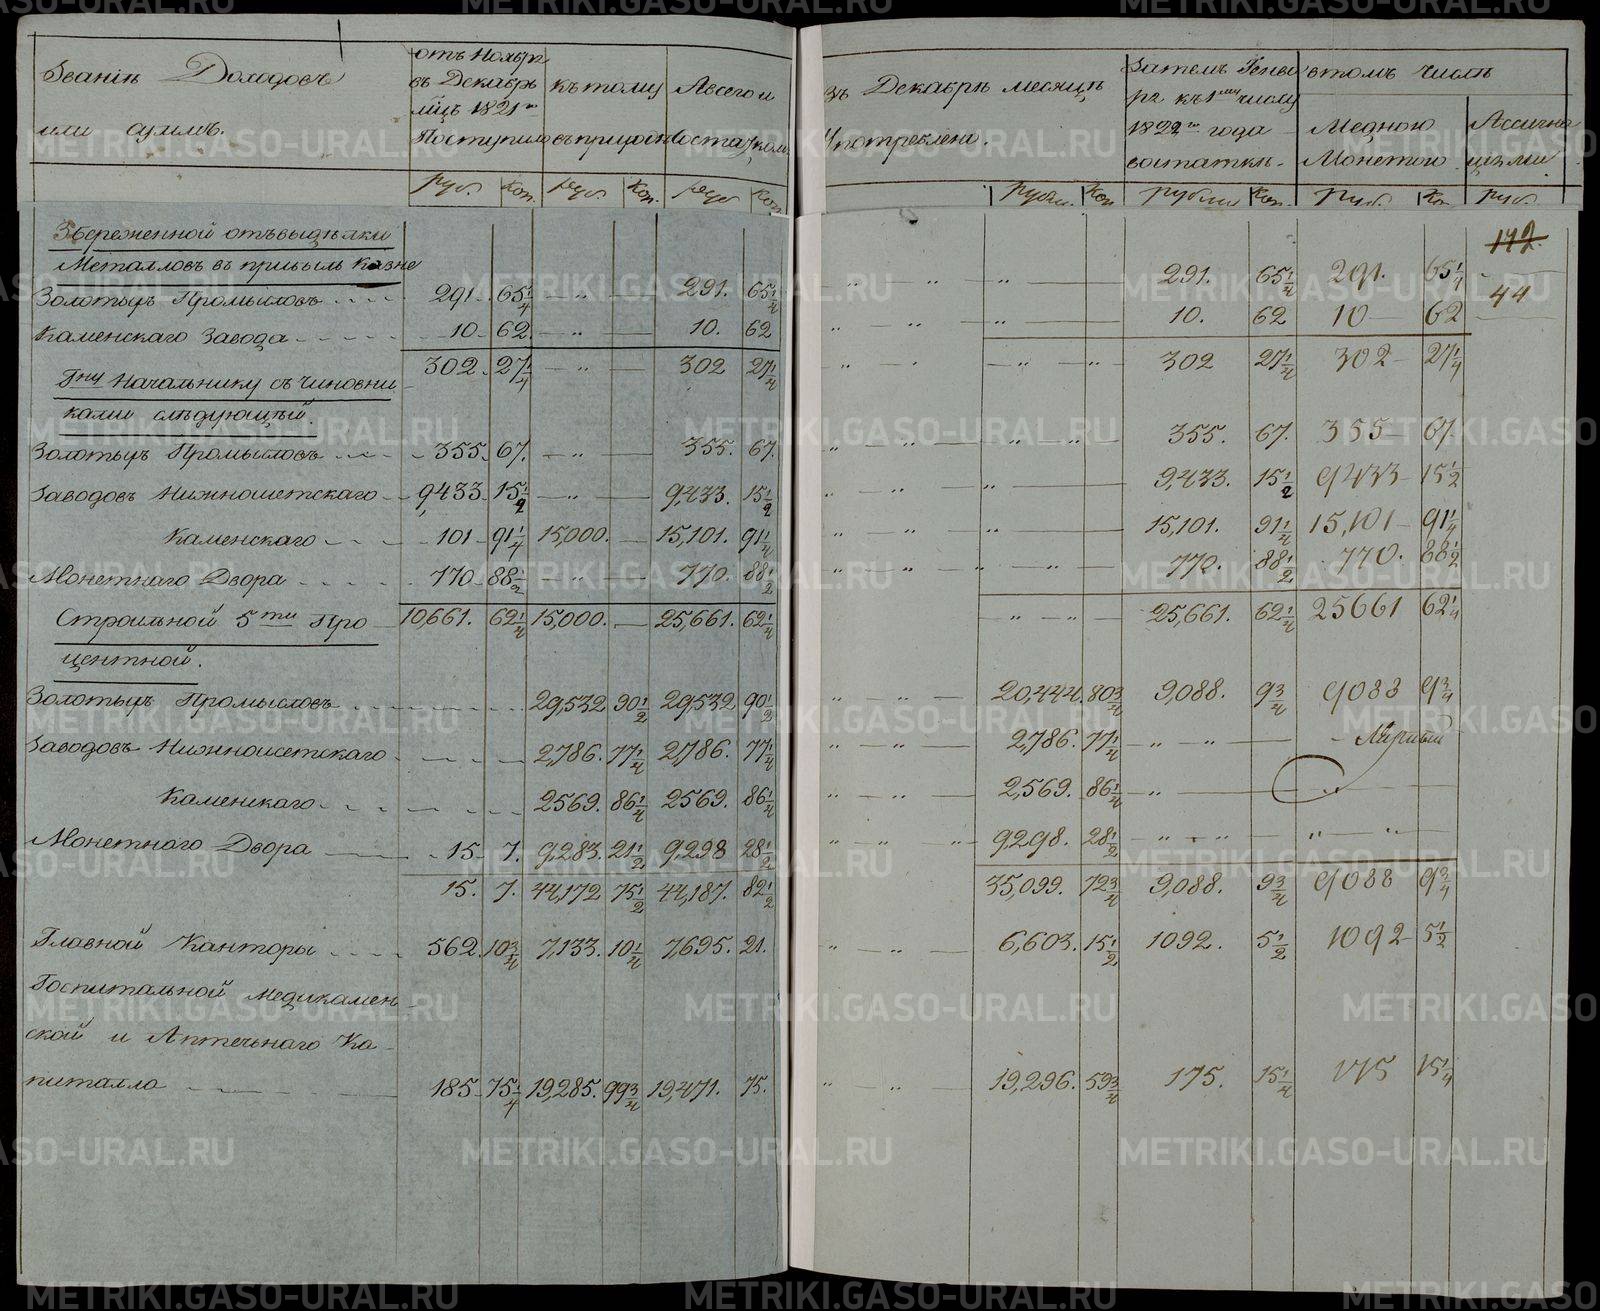 Званiѣ Доходовъ
или суммъ.
отъ Ноября
въ Декабрь
м͠цъ 1821го
Поступило
къ тому
въ приходѣ
А всего и
состаткомъ
Въ Декабрѣ месяцѣ
Употреблено.
Затемъ Генва
ря къ 1му числу
1822го года
востаткѣ.
втомъ числѣ
Медною
Монетою
Ассигна
цiями
руб. Коп. руб. Коп. руб Коп
Рубл. Коп Рубли Коп. Руб. Ко руб
142.
44
Збереженной отъ выдѣлки
Металловъ въ прибыль Казне
Золотыхъ Промысловъ 291. 65 1/4 — „ — 291. 65 1/4 „ — „ — „ — 291. 65 1/4 291. 65 1/4
Каменскаго Завода 10. 62. — „ — 10. 62 „ — „ — „ — 10. 62 10 — 62
302. 27 1/4 — „ — 302 27 1/4 „ — „ — „ 302 27 1/4 302 — 27 1/4
Гну Начальнику съ чиновни
ками слѣдующiй.
Золотыхъ Промысловъ 355. 67. — „ — 355. 67. „ — „ — „ — „ — 355. 67. 355 — 67.
Заводовъ Нижноисетскаго 9,433. 15 1/2 — „ — 9,433. 15 1/2 „ — „ — „ — 9,433. 15 1/2 9433 — 15 1/2
Каменскаго 101 — 91 1/4 15,000. — 15,101. 91 1/4 „ — „ — „ — 15,101. 91 1/4 15,101 — 91 1/4
Монетнаго Двора 770. 88 1/2 — „ — 770. 88 1/2 „ — „ — „ — „ — 770. 88 1/2 770. 88 1/2
10,661. 62 1/4 15,000. — 25,661. 62 1/4 — „ — „ — 25,661. 62 1/4 25661 62 1/4
Строильной 5ти Про
центной.
Золотыхъ Промысловъ 29,532 90 1/2 29,532 90 1/2 „ — „ — 20,444. 80 3/4 9,088. 9 3/4 9088 9 3/4
Заводовъ Нижноисетскаго 2,786. 77 1/4 2,786. 77 1/4 „ — „ — 2,786. 77 1/4 — „ — „ —
Каменскаго 2569. 86 1/4 2569. 86 1/4 „ — „ — 2,569. 86 1/4 — „ — „ —
Монетнаго Двора 15. 7. 9,283. 21 1/2 9,298 28 1/2 „ — „ — „ 9298. 28 1/2 — „ — „ — „ — „ —
15. 7. 44,172 75 1/2 44,187. 82 1/2 35,099. 72 3/4 9,088. 9 3/4 9088 9 3/4
Главной Канторы 562. 10 3/4 7,133. 10 1/4 7,695. 21. „ — „ — 6,603. 15 1/2 1092. 5 1/2 1092 — 5 1/2
Госпитальной медикамен
ской и Аптечьнаго Ка
питалла 185. 75 1/4 19,285. 99 3/4 19,471. 75. „ — „ — 19,296. 59 3/4 175. 15 1/4 175 15 1/4
METRIKI.GASO-URAL.RU